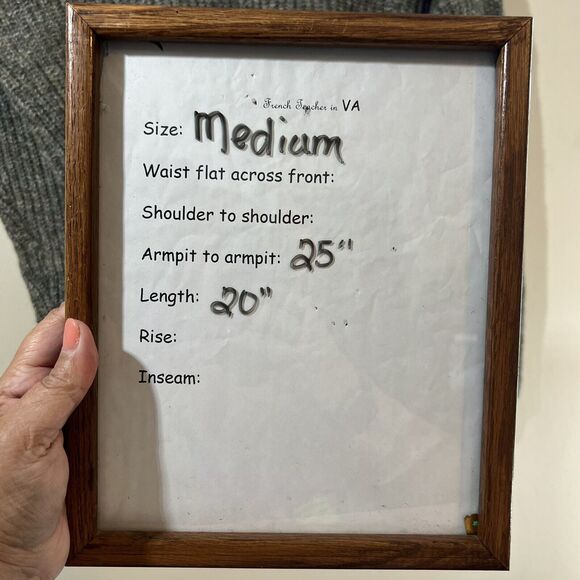 French Teacher in VA
Size: Medium
Waist flat across front:
Shoulder to shoulder:
Armpit to armpit: 25"
Length: 20"
Rise:
Inseam: